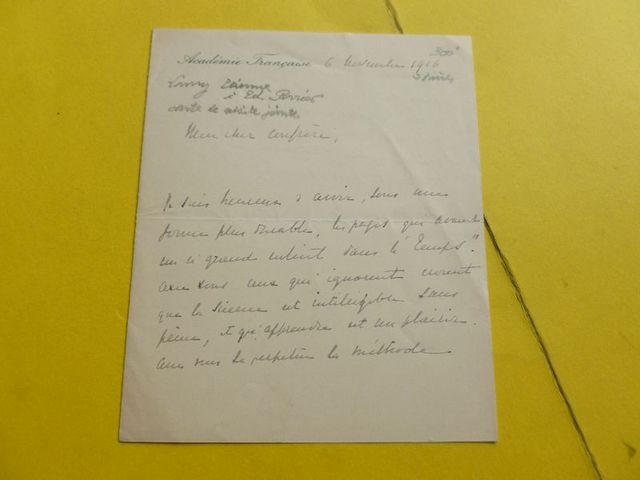 300
Académie Française 6 Novembre 1916
Lamy Etienne
à Ed. Perrier
carte de visite jointe
Mon cher confrère,
Je suis heureux d'avoir, sous une
forme plus durable, les pages qui avaient
un si grand intérêt dans le "Temps."
avec vous ceux qui ignorent croient
que la science est intelligible sans
peine, et qu'apprendre est un plaisir.
la méthode